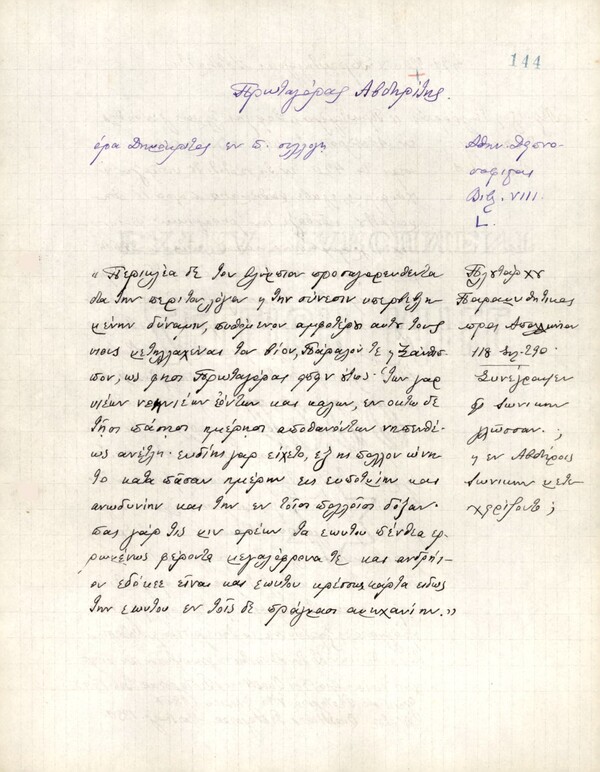 144
Πρωταγόρας Αβδηρίτης.
όρα Δημόκριτος εν π. συλλογή
Αθην. Δειπνο-
σοφιστας
Βιβ. VIII.
L.
« Περικλέα δε τον Ολύμπιον προσαγορευθεντα
δια την περι τον λόγον η την σύνεσιν υπερβεβλη-
μένην δύναμιν, πυθόμενον αμφοτέρους αυτου τους
υιους μετηλλαχέναι τον βίον, Πάραλόν τε η Ξάνθιπ-
πον, ως φησι Πρωταγόρας ειπών ούτως· "Των γαρ
υιέων νεηνιέων εόντων και καλων, εν οκτω δε
τῆσι πάσῃσι ημέρῃσι αποθανόντων νηπενθέ-
ως ανέτλη· ευδίης γαρ είχετο, εξ ης πολλον ώνη-
το κατα πᾶσαν ημέρην εις ευποτμίην και
ανωδυνίην και την εν τοῖσι πολλοῖσι δόξαν·
πας γάρ τις μιν ορέων τα εωυτου πένθεα ερ-
ρωμένως φέροντα μεγαλόφρονά τε και ανδρήι-
ον εδόκεε εἶναι και εωυτου κρέσσω κάρτα ειδως
την εωυτου εν τοῖς δε πράγμασι αμηχανίην.»
Πλουτάρχου
Παραμυθητικος
προς Απολλώνιον
118 Σελ. 290.
Συνέγραψεν
Ιωνικην
γλῶσσαν. ;
η εν Αβδήροις
Ιωνικην μετε-
χειρίζοντο ;